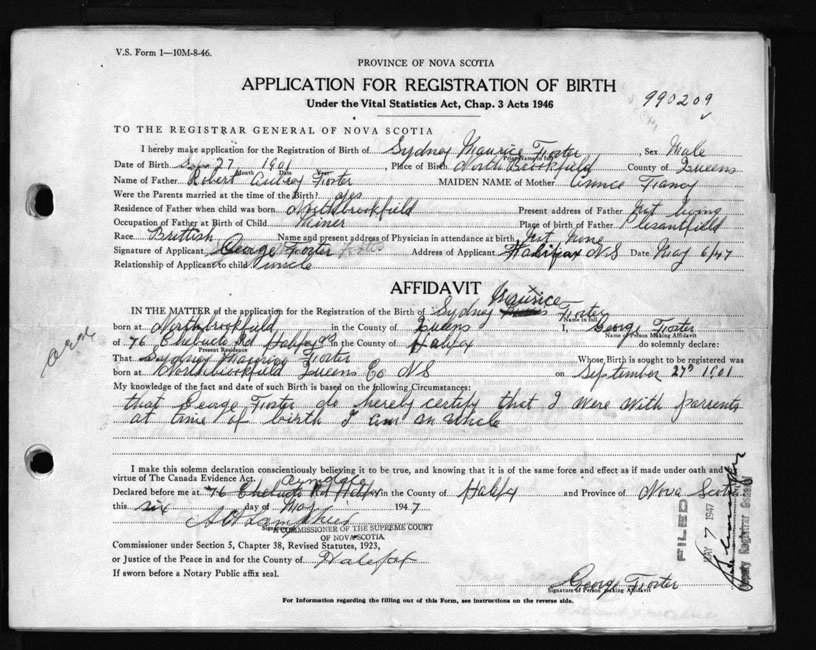 V.S. Form 1—10M-8-46.
PROVINCE OF NOVA SCOTIA
APPLICATION FOR REGISTRATION OF BIRTH
Under the Vital Statistics Act, Chap. 3 Acts 1946
990209
TO THE REGISTRAR GENERAL OF NOVA SCOTIA
I hereby make application for the Registration of Birth of Sydney Maurice Foster, Sex Male
Print Name in full
Date of Birth Sept 27 1901, Place of Birth North Brookfield County of Queens
Month Date Year
Name of Father Robert Aubrey Foster MAIDEN NAME of Mother Annice
Were the Parents married at the time of the Birth? yes
Residence of Father when child was born. Northbrookfield Present address of Father Not living
Occupation of Father at Birth of Child Miner Place of birth of Father Plesantfield
Race Brittish Name and present address of Physician in attendance at birth None
Signature of Applicant George Foster Address of Applicant Halifax N S Date May 6/47
Relationship of Applicant to child uncle
AFFIDAVIT
Maurice
IN THE MATTER of the application for the Registration of the Birth of Sydney Foster
Name in full
born at Northbrookfield in the County of Queens I, George Foster
Name of Person Making Affidavit
of 76 Chebucto Rd Halifax in the County of Halifax do solemnly declare:
Present Residence
That Sydney Maurice Foster Whose Birth is sought to be registered was
born at Northbrookfield Queens Co N S on September 27th 1901
My knowledge of the fact and date of such Birth is based on the following Circumstances:
that George Foster do hereby certify that I were with parrents
at time of birth I am an uncle
I make this solemn declaration conscientiously believing it to be true, and knowing that it is of the same force and effect as if made under oath and
virtue of The Canada Evidence Act.
Armdale
Declared before me at 76 Chebucto Rd Halifax in the County of Halifax and Province of Nova Scotia
this six day of May 1947
A COMMISSIONER OF THE SUPREME COURT
OF NOVA SCOTIA
Commissioner under Section 5, Chapter 38, Revised Statutes, 1923,
or Justice of the Peace in and for the County of Halifax
If sworn before a Notary Public affix seal.
George Foster
Signature of Person Making Affidavit
For Information regarding the filling out of this Form, see instructions on the reverse side.
FILED
MAY 7 1947
Deputy Registrar General